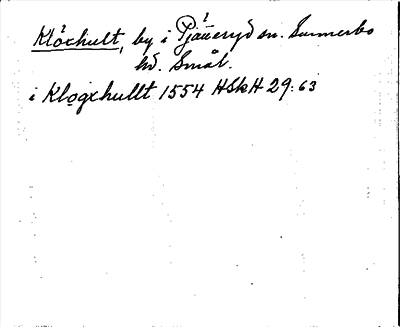 Klöxhult, by i Pjätteryd sn. Sunnerbo
hd. Smål.
i Klogxhullt 1554 HSkH 29:63